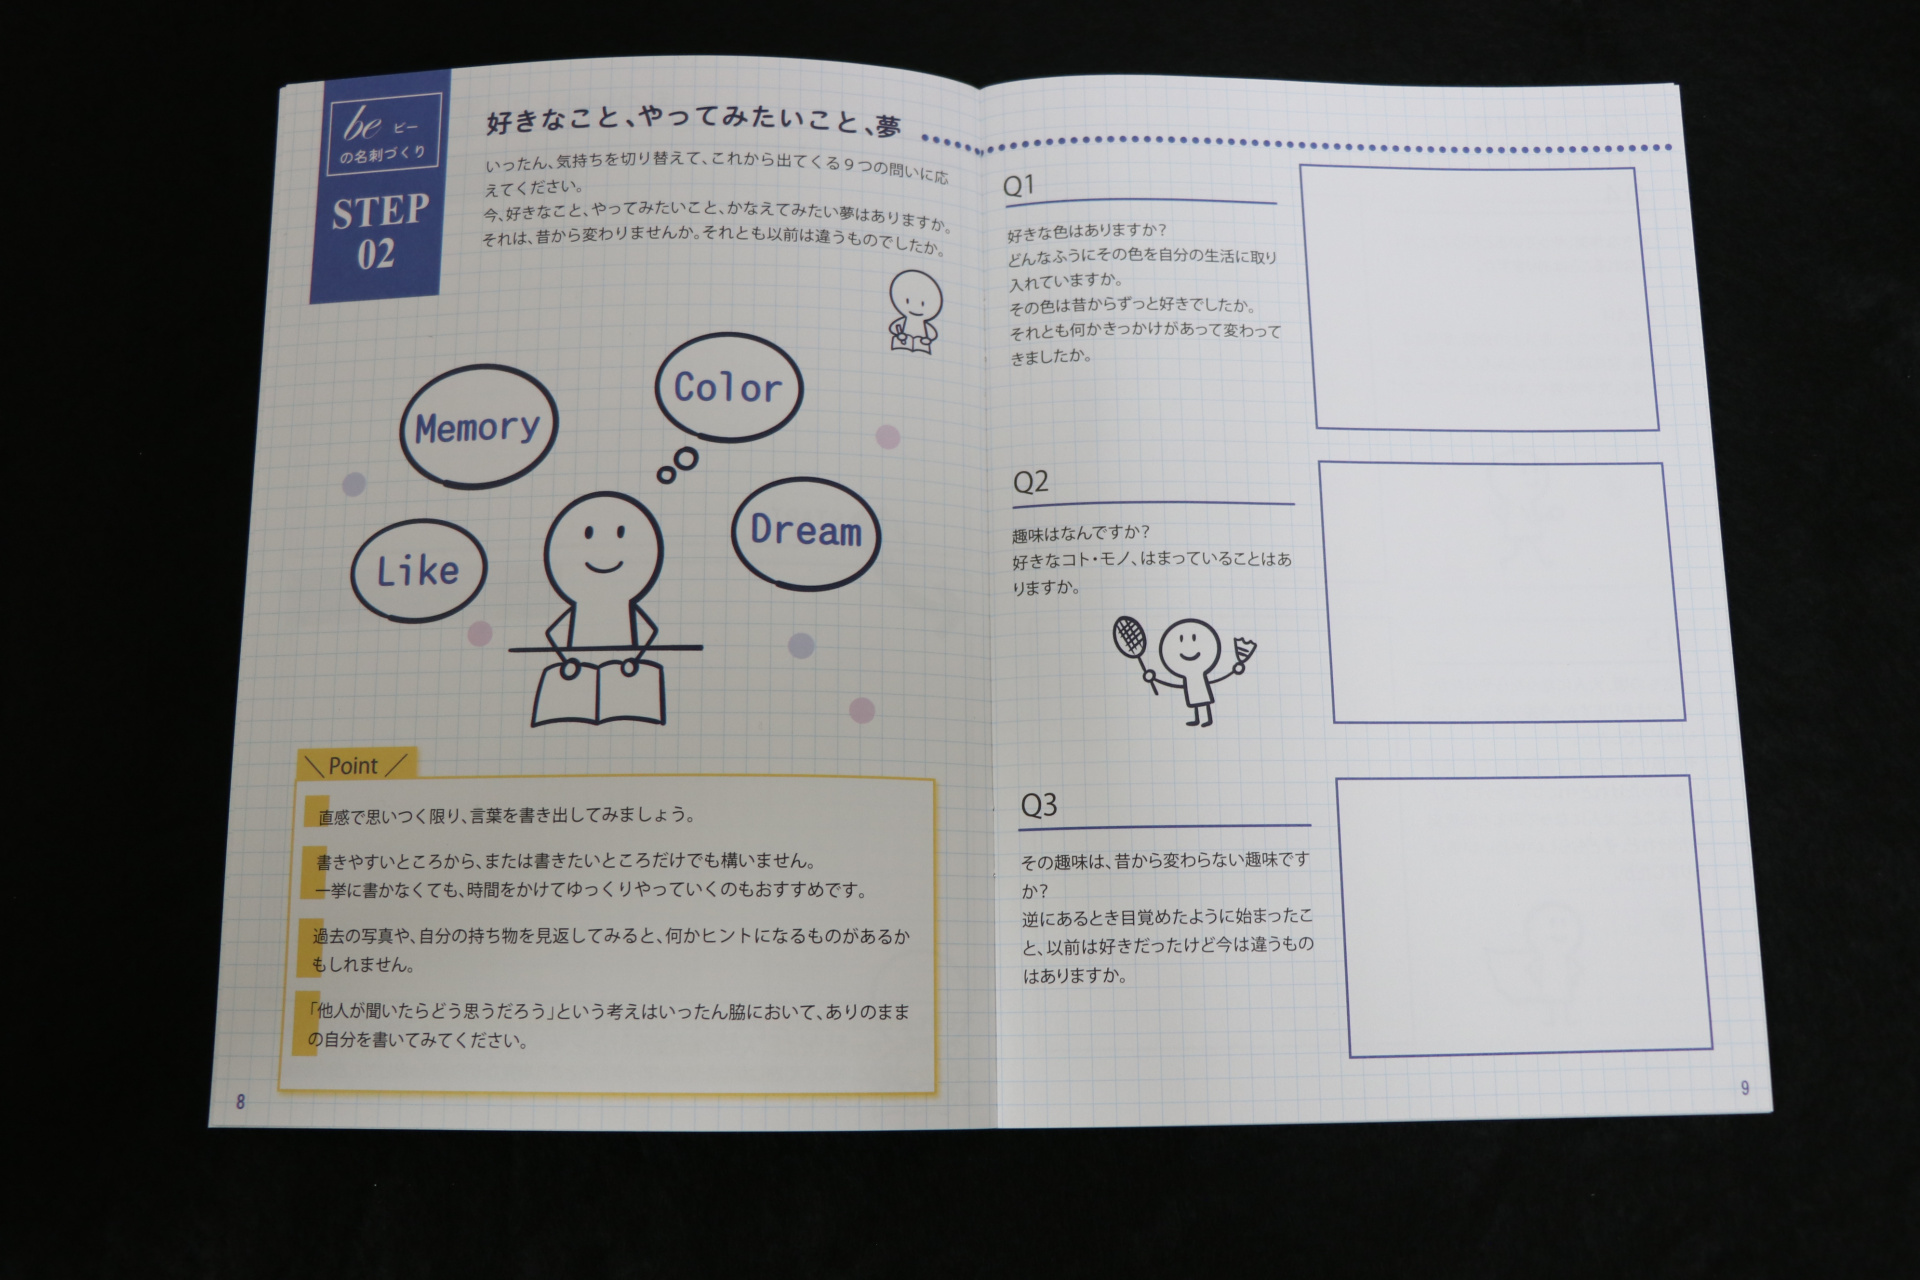 be ビー
の名刺づくり
STEP
02
好きなこと、やってみたいこと、夢
いったん、気持ちを切り替えて、これから出てくる９つの問いに応
えてください。
今、好きなこと、やってみたいこと、かなえてみたい夢はありますか。
それは、昔から変わりませんか。それとも以前は違うものでしたか。
Memory
Color
Like
Dream
＼ Point ／
直感で思いつく限り、言葉を書き出してみましょう。
書きやすいところから、または書きたいところだけでも構いません。
一挙に書かなくても、時間をかけてゆっくりやっていくのもおすすめです。
過去の写真や、自分の持ち物を見返してみると、何かヒントになるものがあるか
もしれません。
「他人が聞いたらどう思うだろう」という考えはいったん脇において、ありのまま
の自分を書いてみてください。
8
Q1
好きな色はありますか？
どんなふうにその色を自分の生活に取り
入れていますか。
その色は昔からずっと好きでしたか。
それとも何かきっかけがあって変わって
きましたか。
Q2
趣味はなんですか？
好きなコト・モノ、はまっていることはあ
りますか。
Q3
その趣味は、昔から変わらない趣味です
か？
逆にあるとき目覚めたように始まったこ
と、以前は好きだったけど今は違うもの
はありますか。
9